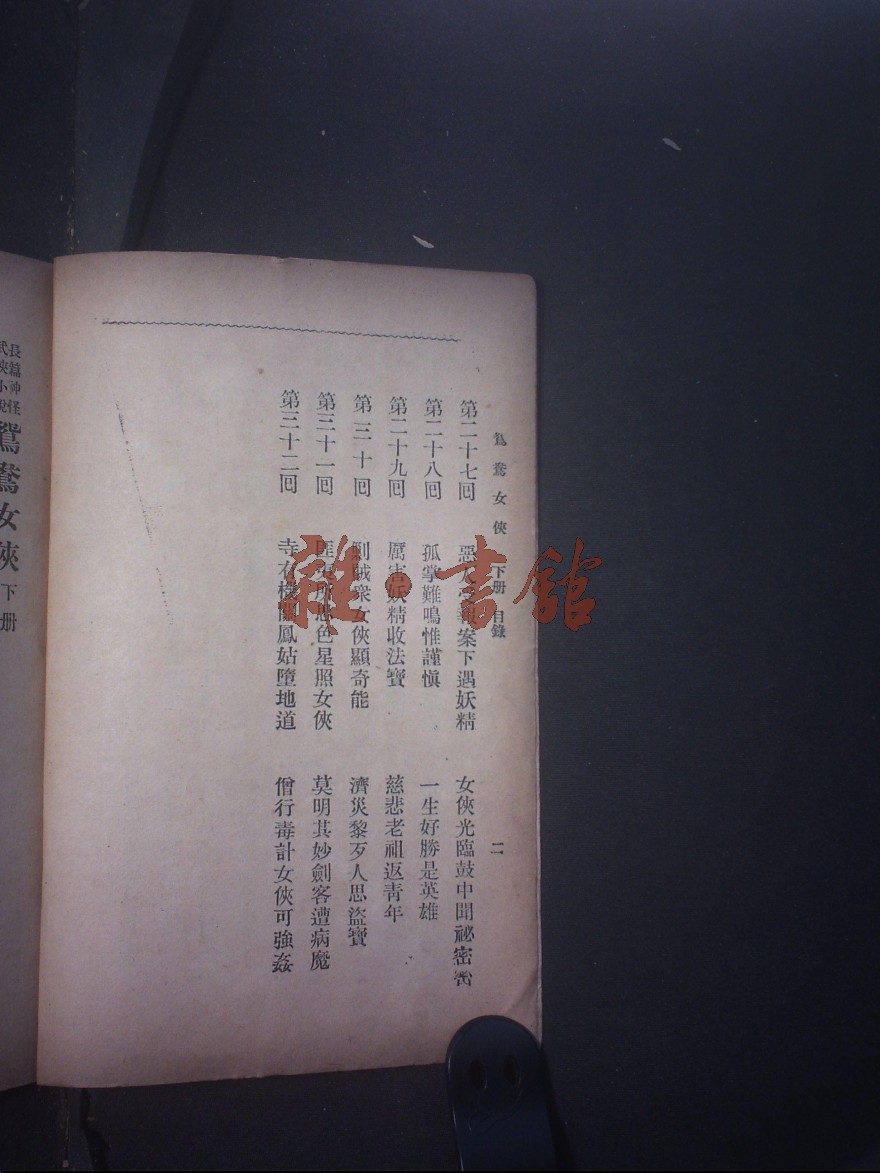 鴛鴦女俠 下册 目錄 二
第二十七回 惡 報案下遇妖精 女俠光臨鼓中聞祕密
第二十八回 孤掌難鳴惟謹慎 一生好勝是英雄
第二十九回 厲害妖精收法寶 慈悲老祖返青年
第三十回 剿賊衆女俠顯奇能 濟災黎歹人思盜寶
第三十一回 匪 所思色星照女俠 莫明其妙劍客遭病魔
第三十二回 寺有 鳳姑墮地道 僧行毒計女俠可強姦
長篇神怪
武俠小說
鴛鴦女俠 下册
雜·書館